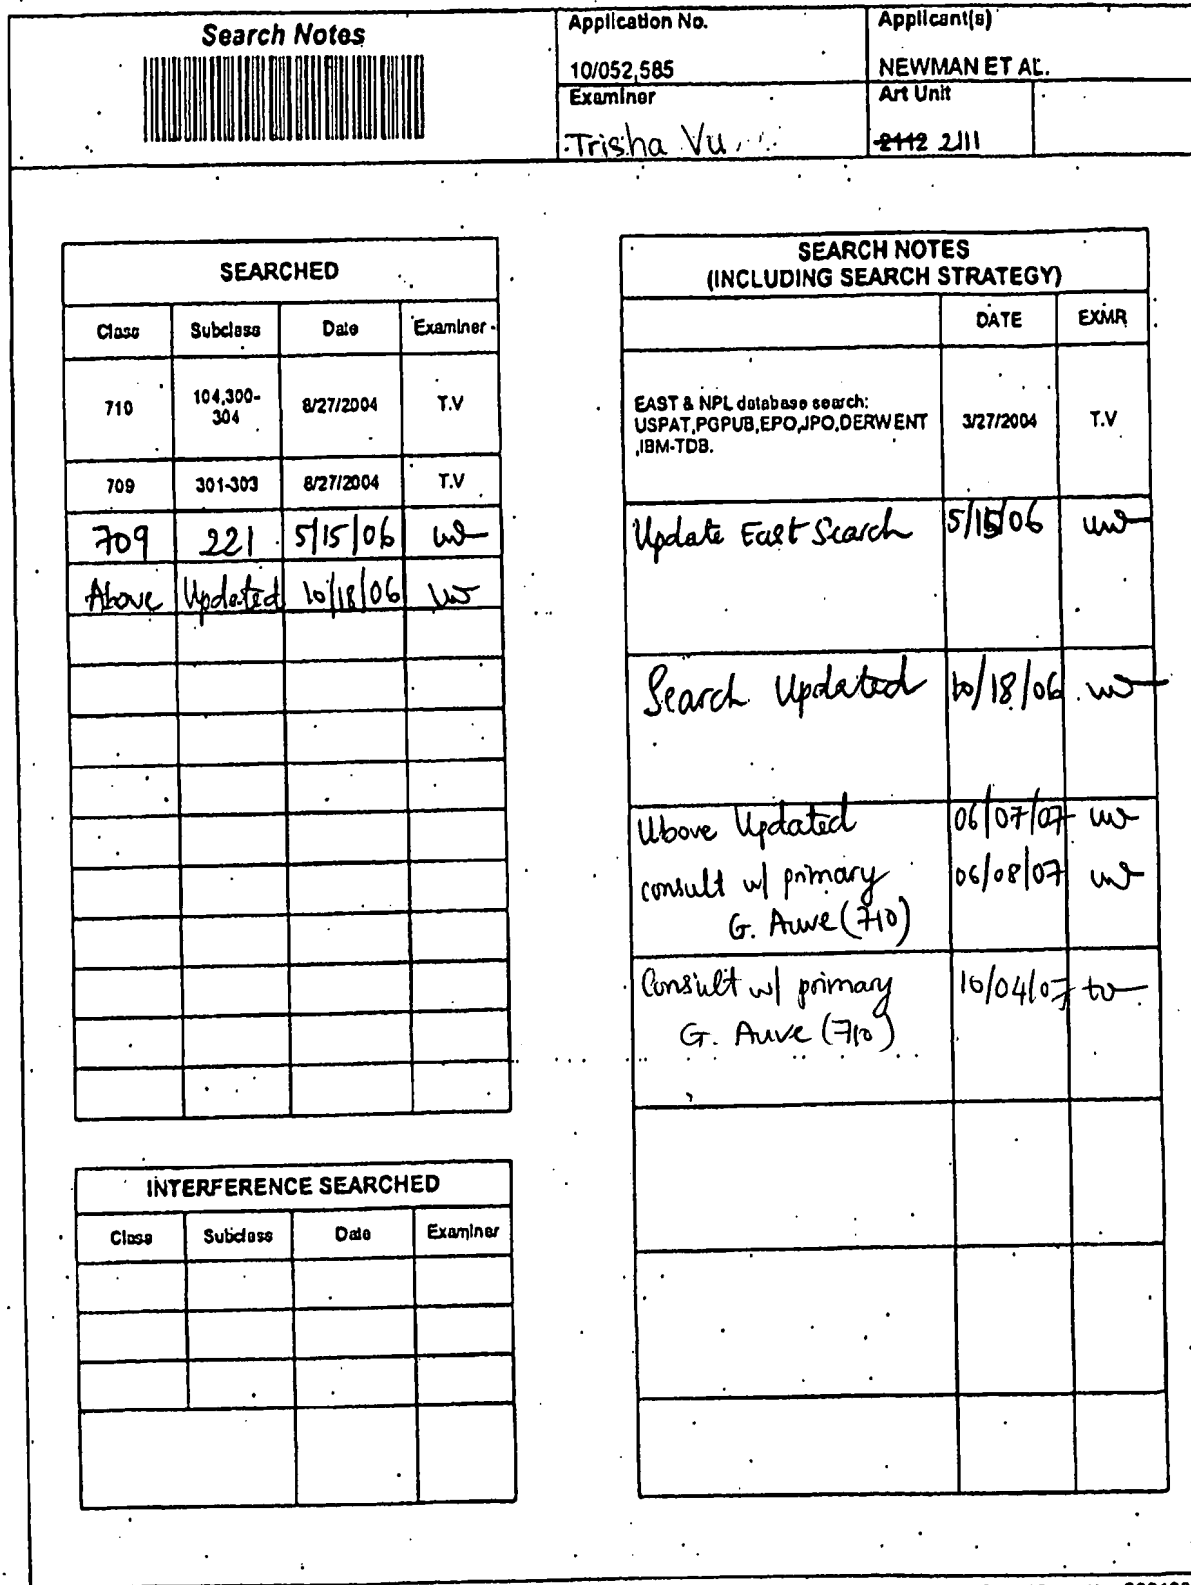 Search Notes
Application No.
10/052,585
Applicant(s)
NEWMAN ET AL.
Examiner
Trisha Vu
Art Unit
2112 2111
SEARCHED
Class Subclass Date Examiner
710 104,300-304 8/27/2004 T.V
709 301-303 8/27/2004 T.V
709 221 5/15/06
Above Updated 10/18/06
INTERFERENCE SEARCHED
Class Subclass Date Examiner
SEARCH NOTES
(INCLUDING SEARCH STRATEGY)
DATE EXMR
EAST & NPL database search:
USPAT,PGPUB,EPO,JPO,DERWENT
,IBM-TDB.
3/27/2004 T.V
Update East Search 5/15/06
Search Updated 10/18/06
Above Updated 06/07/07
consult w/ primary 06/08/07
G. Auve (710)
Consult w/ primary 10/04/07
G. Auve (710)